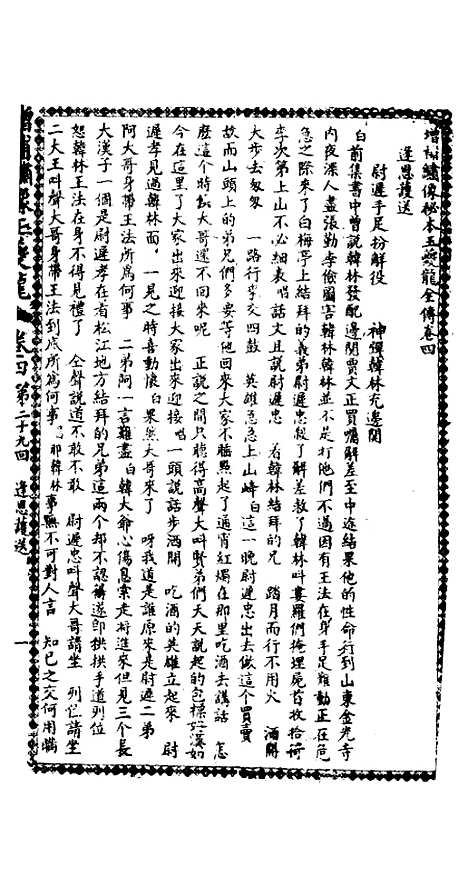 增補繡像秘本玉夔龍全傳卷四
逢思護送
尉遲手足扮解役　神彈韓林充邊關
白前集書中曾說韓林發配邊關賈文正買囑解差至中途結果他的性命行到山東金光寺
內夜深人盡張勤李儉圖害韓林韓林並不是打他們不過因有王法在身手足難動正在危
急之際來了白梅亭上結拜的義弟尉遲忠殺了解差救了韓林叫嘍羅們掩埋屍首枚拾荷
李次第上山不必細表唱話文且說尉遲忠　着韓林結拜的兄　踏月而行不用火　酒醉
大步去匆匆　一路行李交四鼓　英雄急急上山峰白這一晚尉遲忠出去做這個買賣
故而山頭上的弟兄們多要等他回來大家不睡點起了通宵紅燭在那里吃酒去講話　怎
麼這個時候大哥還不回來呢　正說之間只聽得高聲大叫賢弟們天天說起的包標好漢如
今在這里了大家出來迎接大家出來迎接唱一頭說話步酒開　吃酒的英雄立起來　尉
遲孝見過韓林面　一見之時喜動懷白果然大哥來了　呀我道是誰原來是尉遲二弟
阿大哥身帶王法所為何事　二弟阿一言難盡白韓大爺心傷息索走將進來但見三個長
大漢子一個是尉遲孝在着松江地方結拜的兄弟這兩個却不認識遂即拱拱手道列位
恕韓林王法在身不得見禮了　全聲說道不敢不敢　尉遲忠叫聲大哥請坐　列位請坐
二大王叫聲大哥身帶王法到底所為何事唱那韓林事無不可對人言　知己之交何用瞞
卷四第二十九回　逢思護送　一